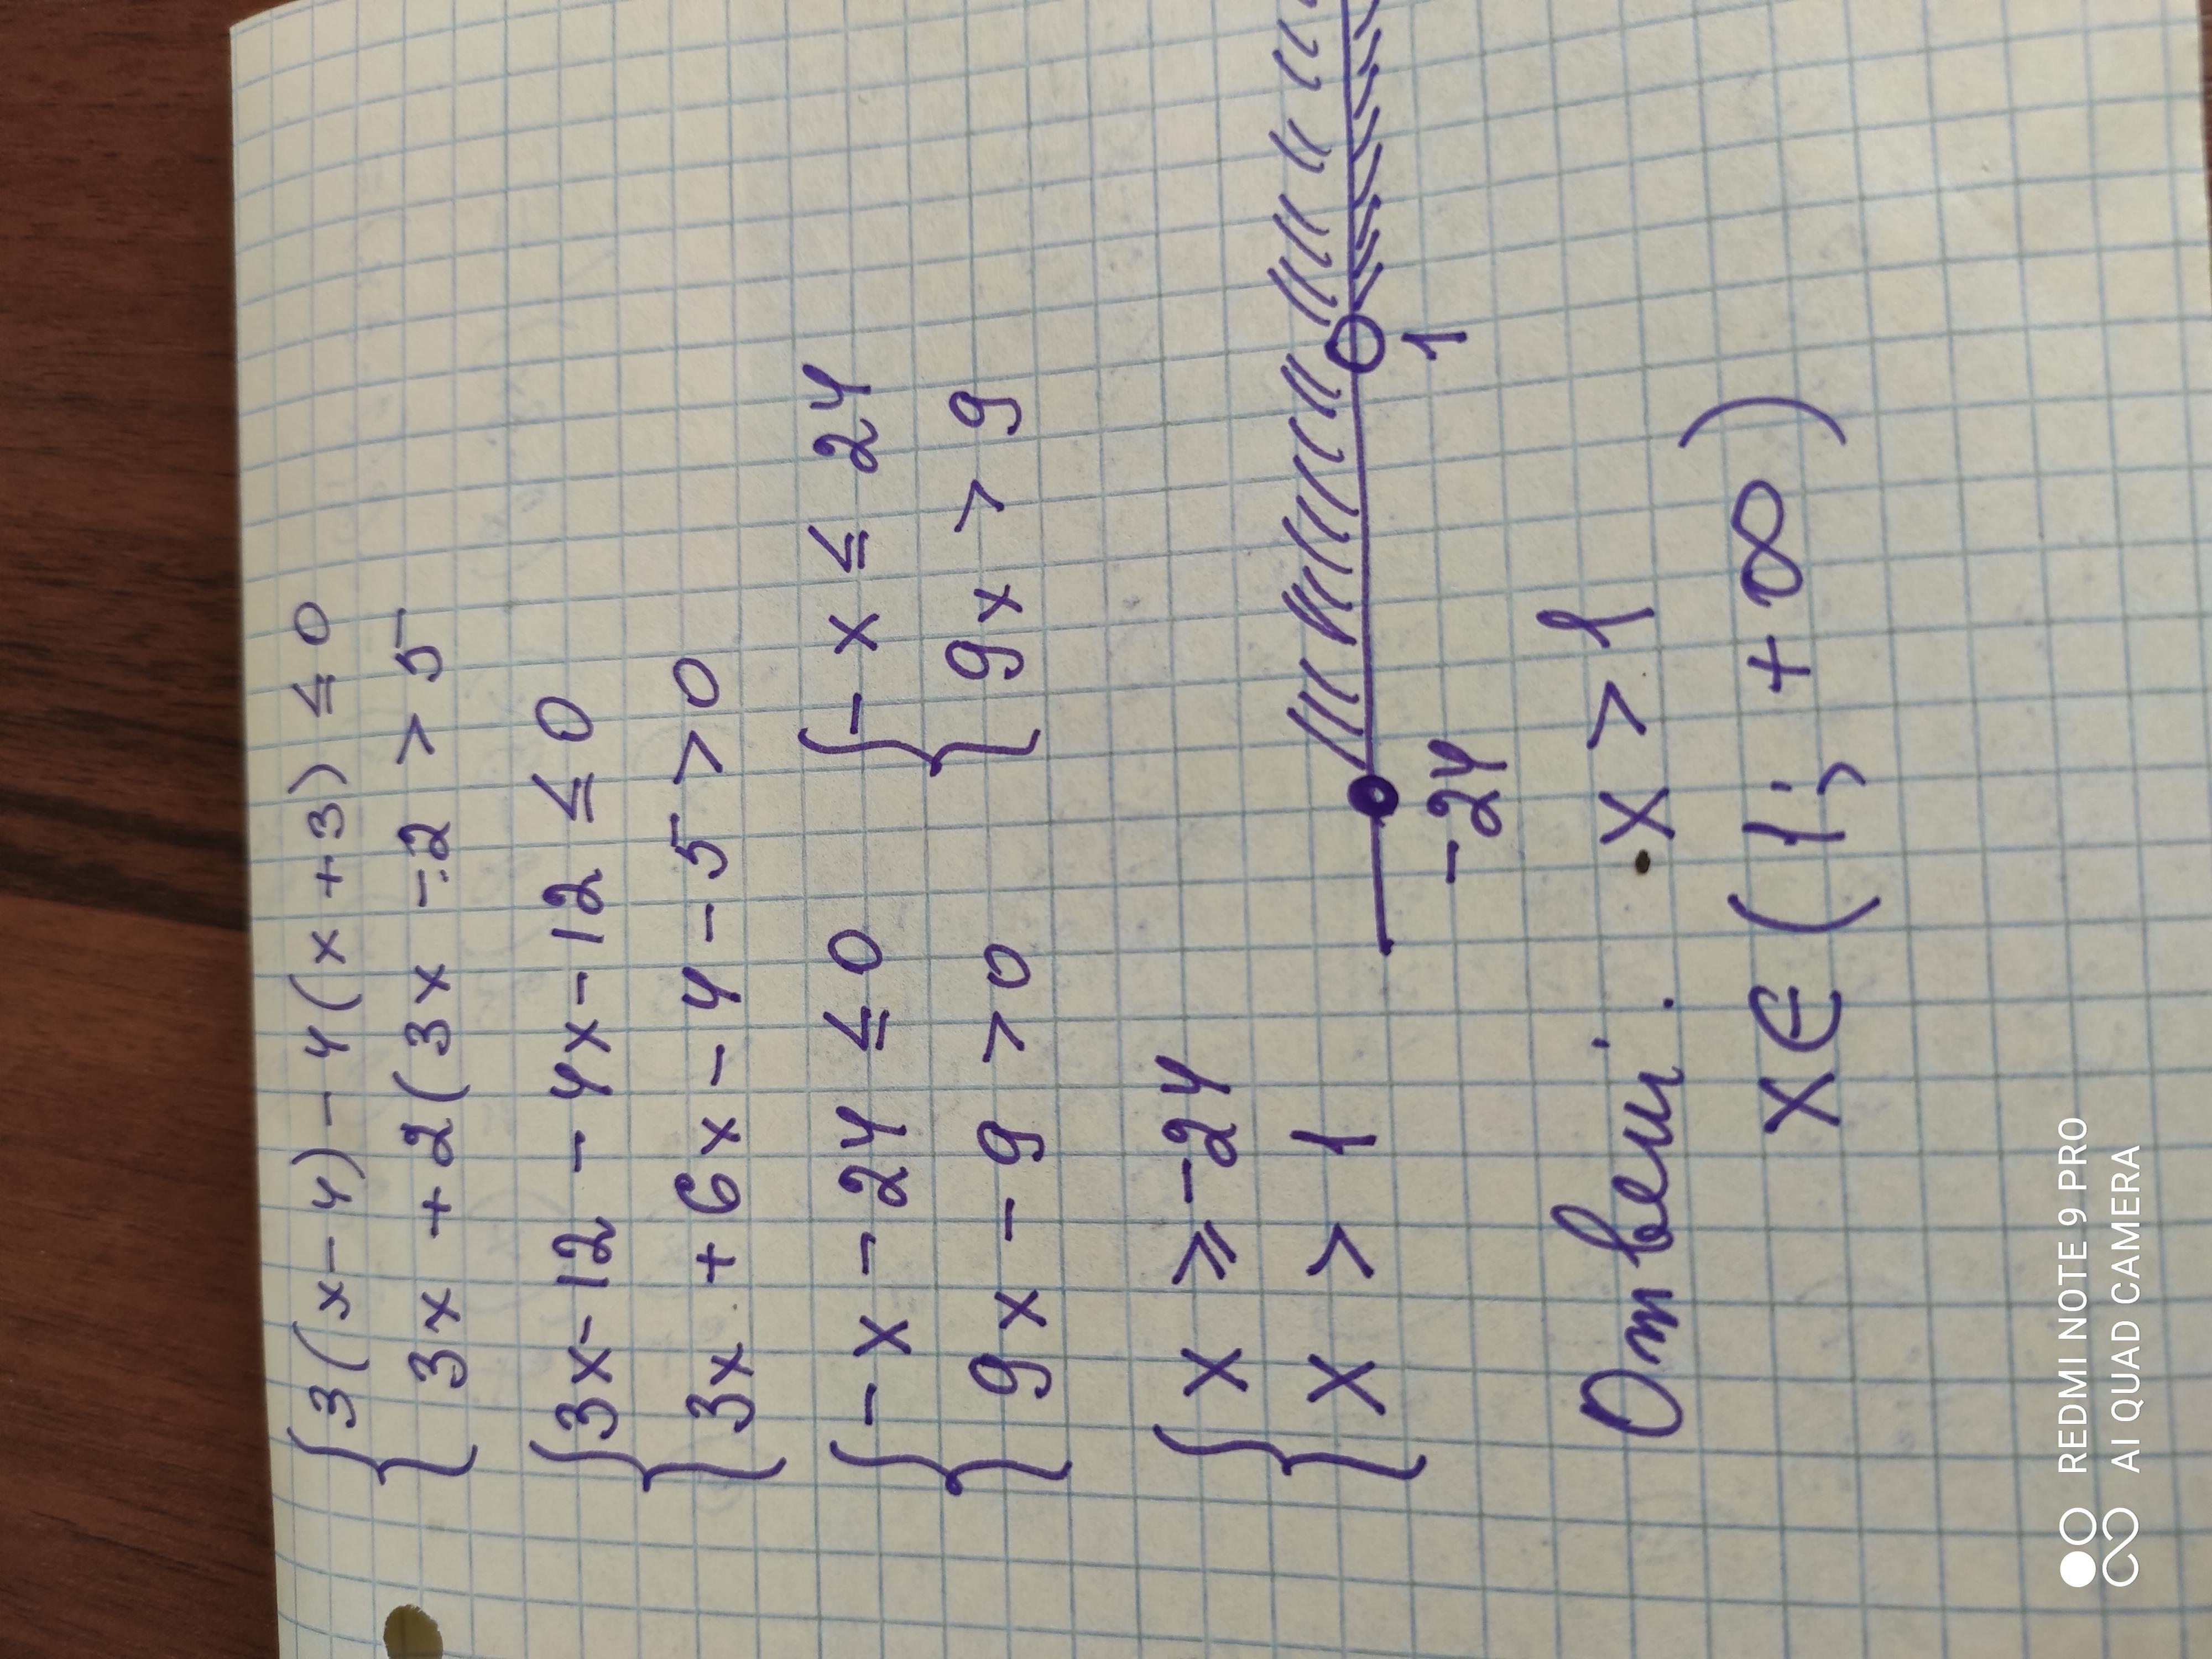 {3(x-4)-4(x+3)≤0
3x+2(3x-2>5
{3x-12-4x-12≤0
3x+6x-4-5>0
{-x-24≤0 {-x≤24
9x-9>0 9x>9
{x⩾-24
x>1
-24 1
Ответ: x>1
x∈(1;+∞)
REDMI NOTE 9 PRO
AI QUAD CAMERA